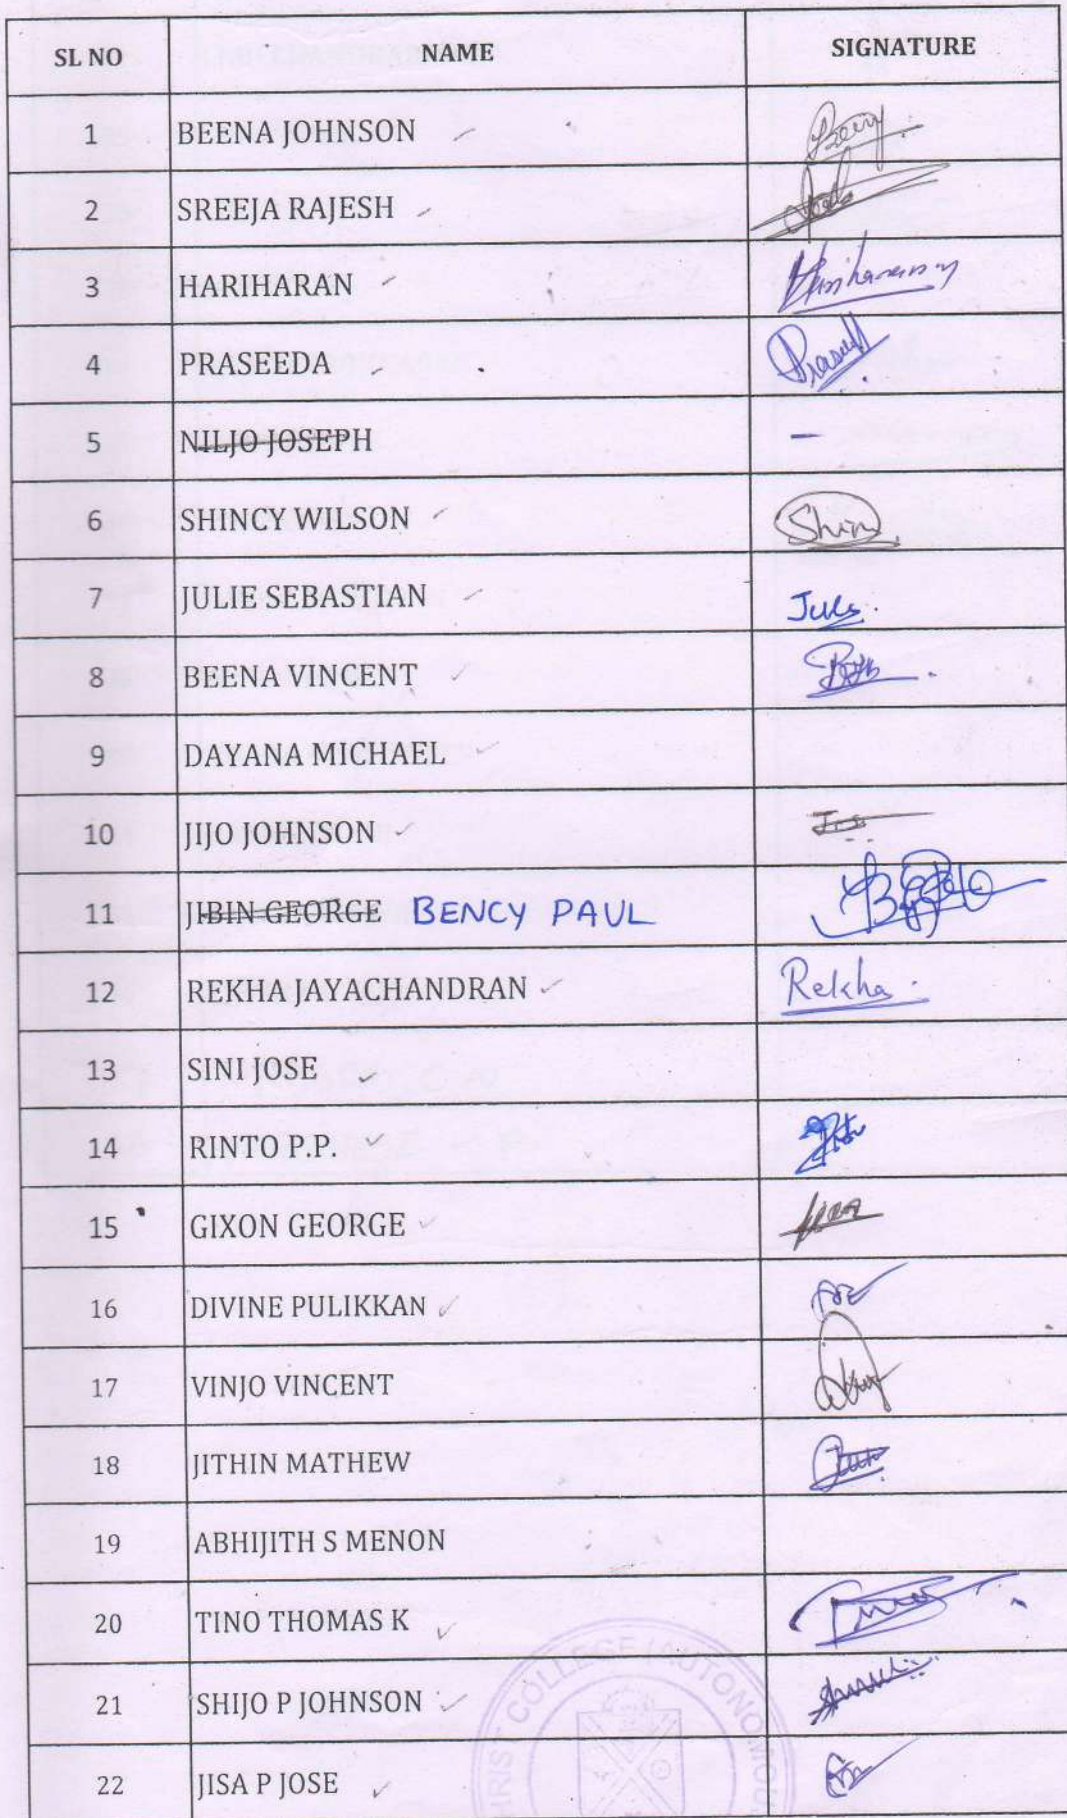 SL NO NAME SIGNATURE
1 BEENA JOHNSON
2 SREEJA RAJESH
3 HARIHARAN
4 PRASEEDA
5 NILJO JOSEPH –
6 SHINCY WILSON
7 JULIE SEBASTIAN
8 BEENA VINCENT
9 DAYANA MICHAEL
10 JIJO JOHNSON
11 JIBIN GEORGE BENCY PAUL
12 REKHA JAYACHANDRAN Rekha
13 SINI JOSE
14 RINTO P.P.
15 GIXON GEORGE
16 DIVINE PULIKKAN
17 VINJO VINCENT
18 JITHIN MATHEW
19 ABHIJITH S MENON
20 TINO THOMAS K
21 SHIJO P JOHNSON
22 JISA P JOSE
COLLEGE